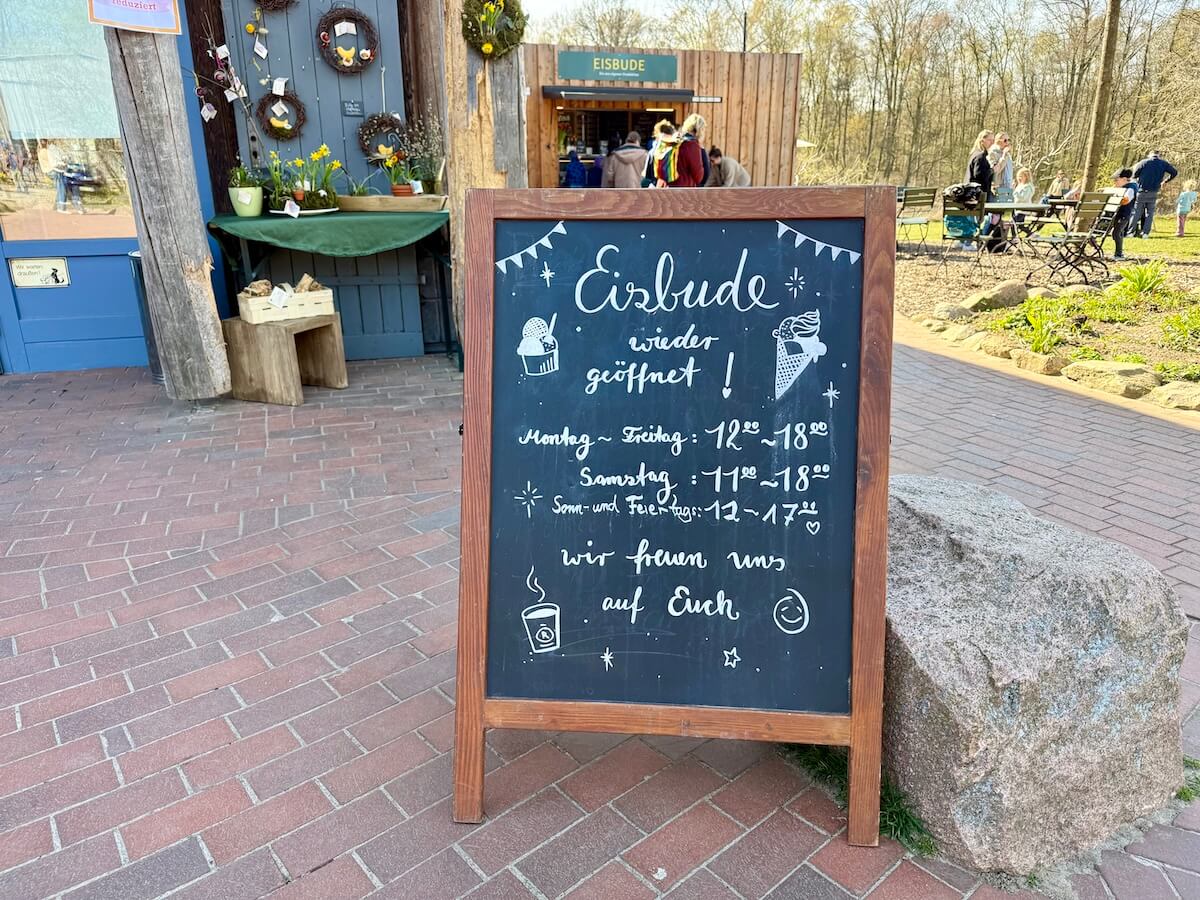 reduziert
EISBUDE
Wir warten
draußen!
Eisbude
wieder
geöffnet!
Montag ~ Freitag: 12⁰⁰ ~ 18⁰⁰
Samstag : 11⁰⁰ ~ 18⁰⁰
Sonn- und Feiertags: 12 ~ 17⁰⁰
wir freuen uns
auf Euch
R